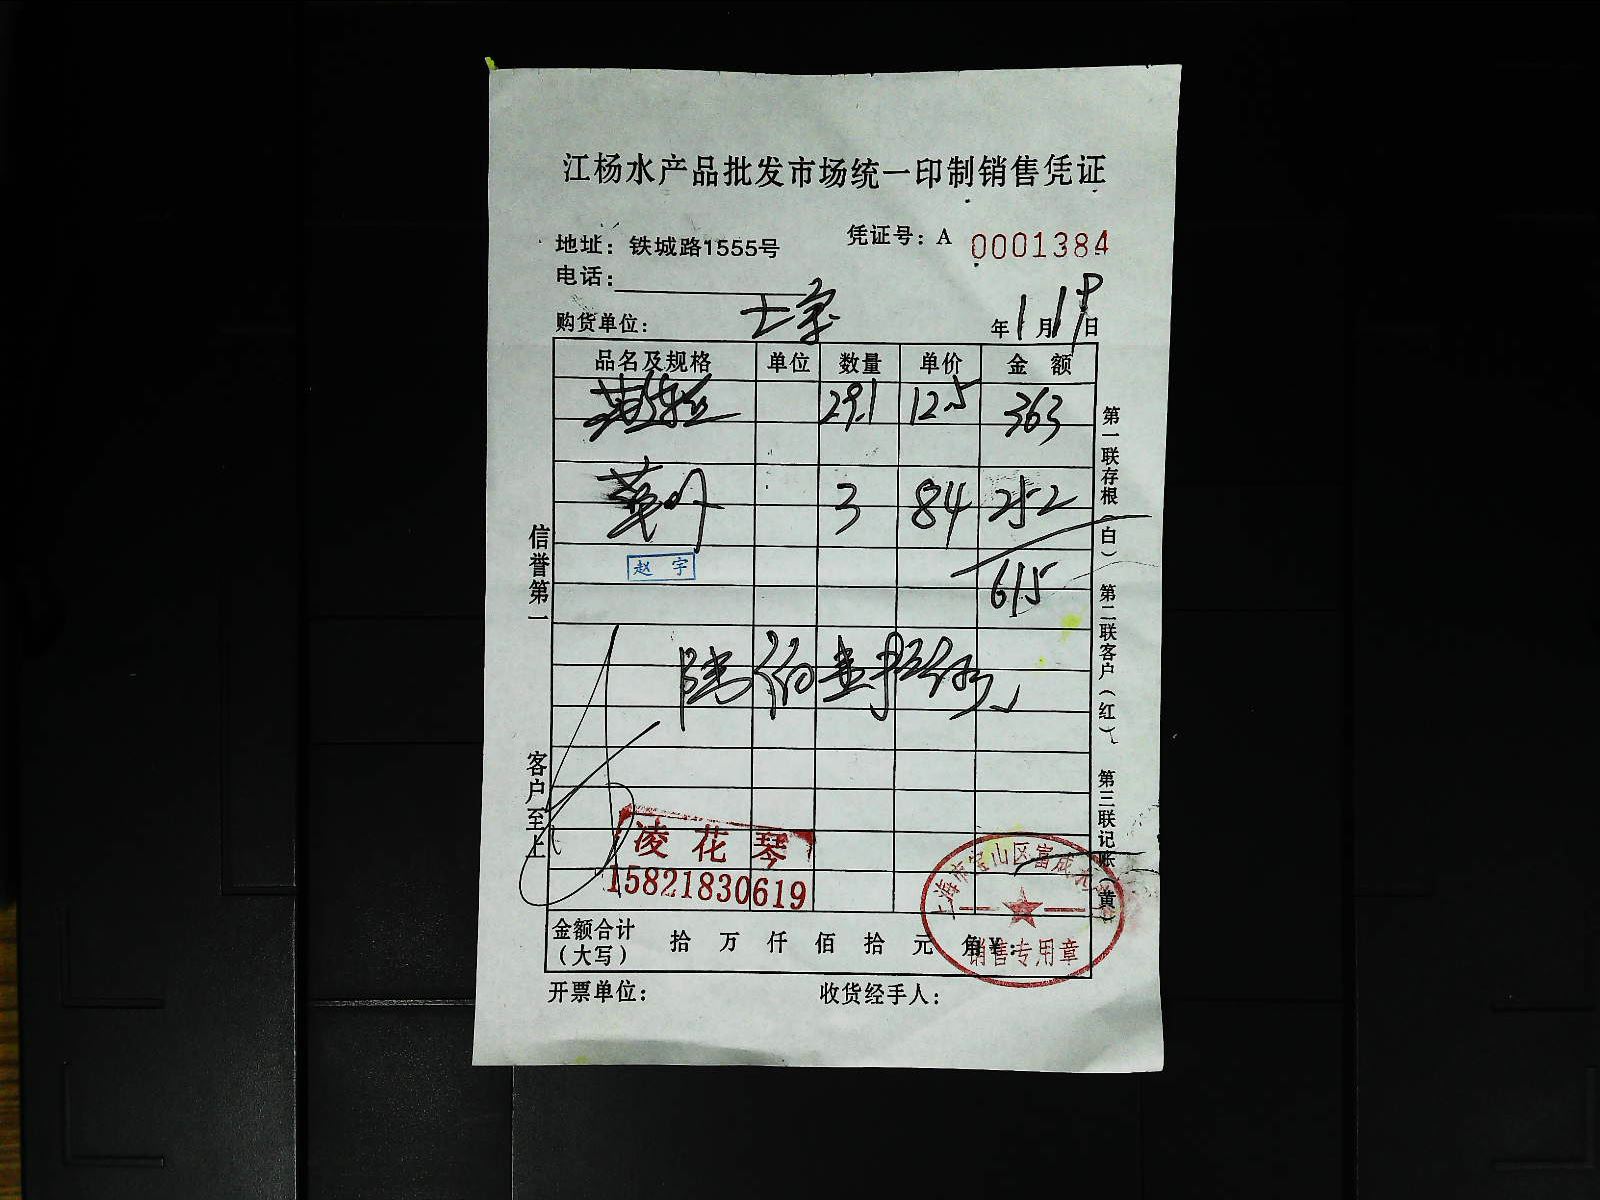 江杨水产品批发市场统一印制销售凭证
地址：铁城路1555号
凭证号：A 0001384
电话：
购货单位：
年1月19日
品名及规格 单位 数量 单价 金额
29.1 12.5 363
3 84 252
赵宇
615
陆佰壹拾伍元
凌花琴
15821830619
金额合计（大写） 拾 万 仟 佰 拾 元 角 ¥：
开票单位： 收货经手人：
信誉第一
客户至上
第一联存根（白） 第二联客户（红） 第三联记账（黄）
上海市宝山区富成
销售专用章